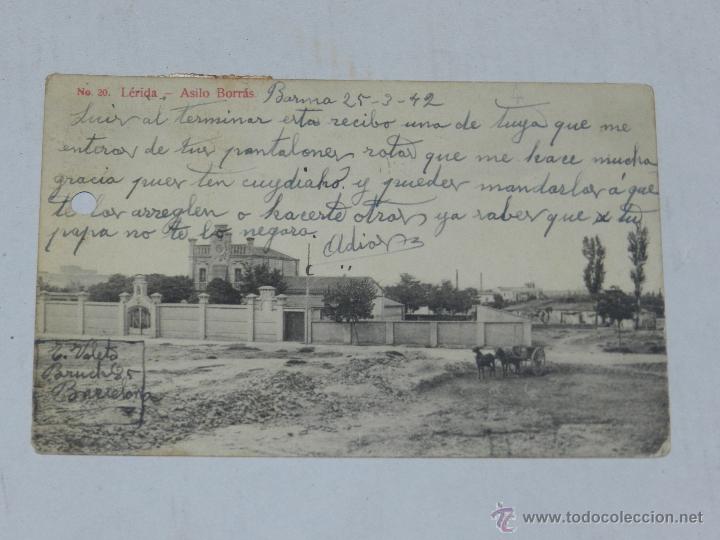 No. 20. Lérida – Asilo Borrás Barna 25-3-42
Luis al terminar esta recibo una de tuya que me
enteras de tus pantalones rotos que me hace mucha
gracia pues ten cuydiaho. y puedes mandarlos á que
te los arreglen o hacerte otros ya sabes que tu
papa no te lo negara. Adios
E. Valets
Baruch 25
Barcelona
© www.todocoleccion.net